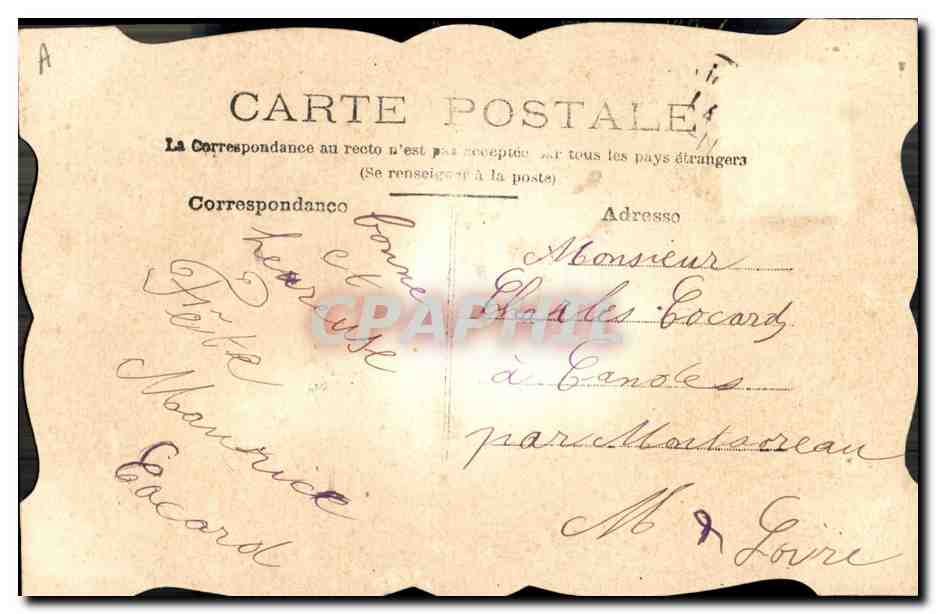 A
CARTE POSTALE
La Correspondance au recto n'est pas acceptée par tous les pays étrangers
(Se renseigner à la poste)
Correspondance
bonne
et
heureuse
Fête
Maurice
Cocard
Adresse
Monsieur
Charles Cocard
à Candes
par Montsoreau
M & Loire
CPAPHIL